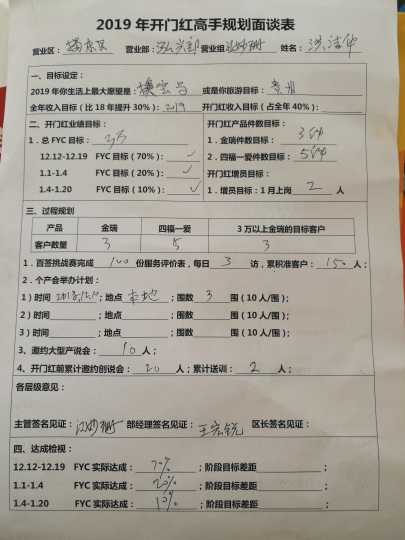 2019 年开门红高手规划面谈表
营业区: 营业部: 营业组: 姓名: 洪洁华
一、目标设定:
2019 年你生活上最大愿望是: 换宝马 或是你旅游目标: 贵州
全年收入目标(比 18 年提升 30%): 2019 开门红收入目标(占全年 40%):
二、开门红业绩目标:
1. 总 FYC 目标:
12.12-12.19 FYC 目标(70%): ✓
1.1-1.4 FYC 目标(20%): ✓
1.4-1.20 FYC 目标(10%): ✓
开门红产品件数目标:
1. 金瑞件数目标: 3件
2. 四福一爱件数目标: 5件
开门红增员目标:
1. 增员目标: 1 月上岗 2 人
三、过程规划
产品 金瑞 四福一爱 3 万以上金瑞的目标客户
客户数量 3 5 3
1. 百签挑战赛完成 100 份服务评价表, 每日 3 访, 累积准客户: 150 人;
2. 个产会举办计划:
1) 时间 ; 地点 本地 ; 围数 3 围(10 人/围);
2) 时间 ; 地点 ; 围数 围(10 人/围);
3) 时间 ; 地点 ; 围数 围(10 人/围);
3、邀约大型产说会: 10 人;
4、开门红前累计邀约创说会: 20 人; 累计送训: 2 人;
各层级意见:
主管签名见证: 部经理签名见证: 王宏锐 区长签名见证:
四、达成检视:
12.12-12.19 FYC 实际达成: 70% ; 阶段目标差距 ;
1.1-1.4 FYC 实际达成: 20% ; 阶段目标差距 ;
1.4-1.20 FYC 实际达成: 10% ; 阶段目标差距 ;